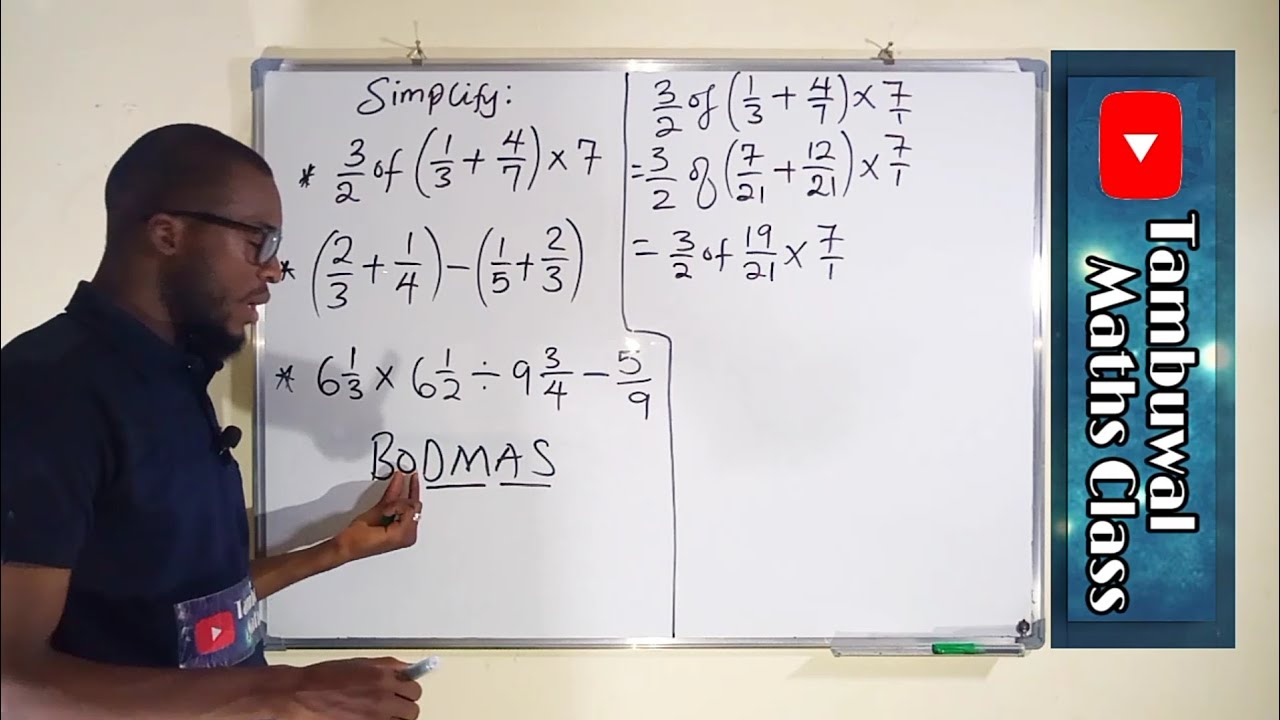 Simplify:
* 3/2 of (1/3 + 4/7) × 7
* (2/3 + 1/4) − (1/5 + 2/3)
* 6 1/3 × 6 1/2 ÷ 9 3/4 − 5/9
BODMAS
3/2 of (1/3 + 4/7) × 7/1
= 3/2 of (7/21 + 12/21) × 7/1
= 3/2 of 19/21 × 7/1
Tambuwal
Maths Class